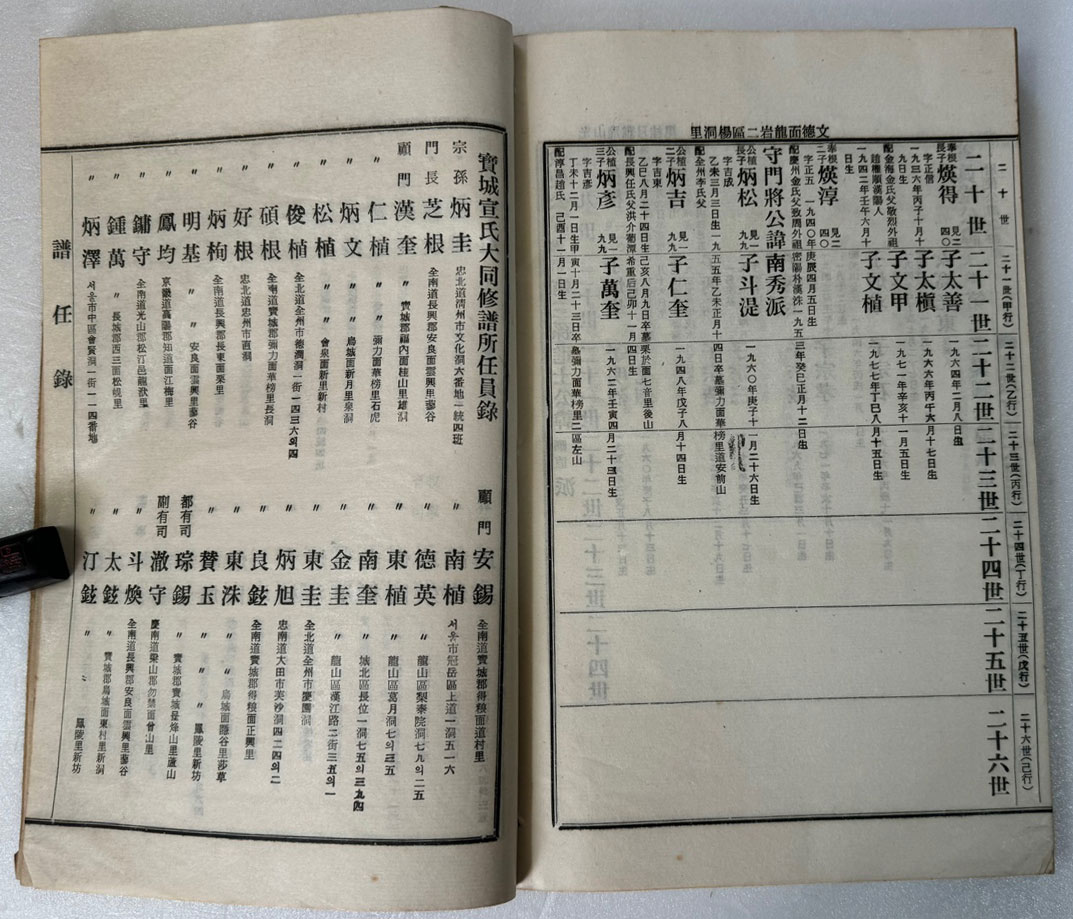 文德面龍岩二區楊洞里
二十世
二十一世(甲行)
二十二世(乙行)
二十三世(丙行)
二十四世(丁行)
二十五世(戊行)
二十六世(己行)
二十世
二十一世
二十二世
二十三世
二十四世
二十五世
二十六世
奉根長子煐得 見二四〇
字正信
一九三六年丙子十月十九日生
配金海金氏父敬烈外祖趙雍順漢陽人
一九四二年壬午六月十日生
子太善 一九六四年二月八日生
子太槇 一九六六年丙午六月十七日生
子文甲 一九七一年辛亥十一月五日生
子文植 一九七七年丁巳八月十五日生
奉根二子煐淳 見二四〇
字正五 一九四〇年庚辰四月五日生
配慶州金氏父致周外祖密陽朴漢洙一九五三年癸巳正月十二日生
守門將公諱南秀派
公植長子炳松 見一九九
字吉成
乙未三月三日生一九五五年乙未正月十四日卒墓彌力面華榜里道安前山
配全州李氏父
子斗湜 一九六〇年庚子十一月二十六日生
公植二子炳吉 見一九九
字吉東
乙巳八月二十四日生己亥八月九日卒墓栗於面七音里後山
配長興任氏父洪介葡潭希重后己卯十一月四日生
子仁奎 一九四八年戊子八月十四日生
公植三子炳彥 見一九九
字吉彥
丁未十二月一日生甲寅十月二十三日卒墓彌力面華榜里二區左山
配淳昌趙氏 己酉十一月一日生
子萬奎 一九六二年壬寅四月二十三日生
寶城宣氏大同修譜所任員錄
宗孫 炳圭 忠北道淸州市文化洞六番地一統四班
門長 芝根 全南道長興郡安良面雲興里蓼谷
顧門 漢奎 〃 寶城郡福內面桂山里雄洞
〃 仁植 〃 彌力面華榜里石虎
〃 炳文 〃 鳥城面新月里泉洞
〃 松植 〃 會泉面新里新村
〃 俊植 全北道全州市德津洞一街一四三六의四
〃 碩根 全南道寶城郡彌力面華榜里長洞
〃 好根 忠北道忠州市直洞
〃 炳栒 全南道長興郡長東面栗里
〃 明基 〃 〃 安良面雲興里蓼谷
〃 鳳均 京畿道高陽郡知道面江梅里
〃 鏞守 全南道光山郡松汀邑龍洑里
〃 鍾萬 〃 長城郡西三面松峴里
〃 炳澤 서울市中區會賢洞一街一一四番地
顧門 安錫 全南道寶城郡得粮面道村里
〃 南植 서울市冠岳區上道一洞五一六
〃 德英 〃 龍山區梨泰院洞七九의二五
〃 東植 〃 龍山區葛月洞七의三五
〃 南奎 〃 城北區長位一洞七五의三九四
〃 金圭 〃 龍山區漢江路二街三五의一
〃 東圭 全北道全州市慶園洞
〃 炳旭 忠南道大田市芙沙洞四二四의二
〃 良鉉 全南道寶城郡得粮面正興里
〃 東洙 〃 〃 鳥城面隱谷里莎草
〃 贊玉 〃 〃 〃 鳳陵里新坊
都有司 琮錫 〃 寶城郡寶城邑烽山里蘆山
副有司 澈守 慶南道梁山郡勿禁面曾山里
〃 斗煥 全南道長興郡安良面雲興里蓼谷
〃 太鉉 〃 寶城郡鳥城面東村里新洞
〃 汀鉉 〃 〃 〃 鳳陵里新坊
譜任錄